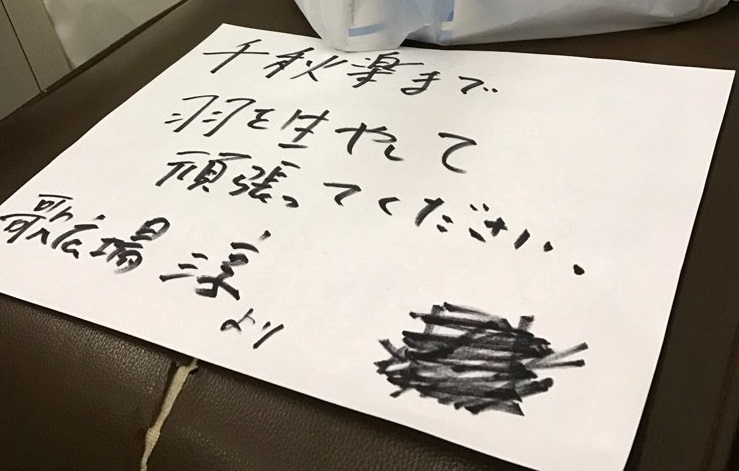 千秋楽まで
羽を生やして
頑張ってください。
歌広場 淳
より